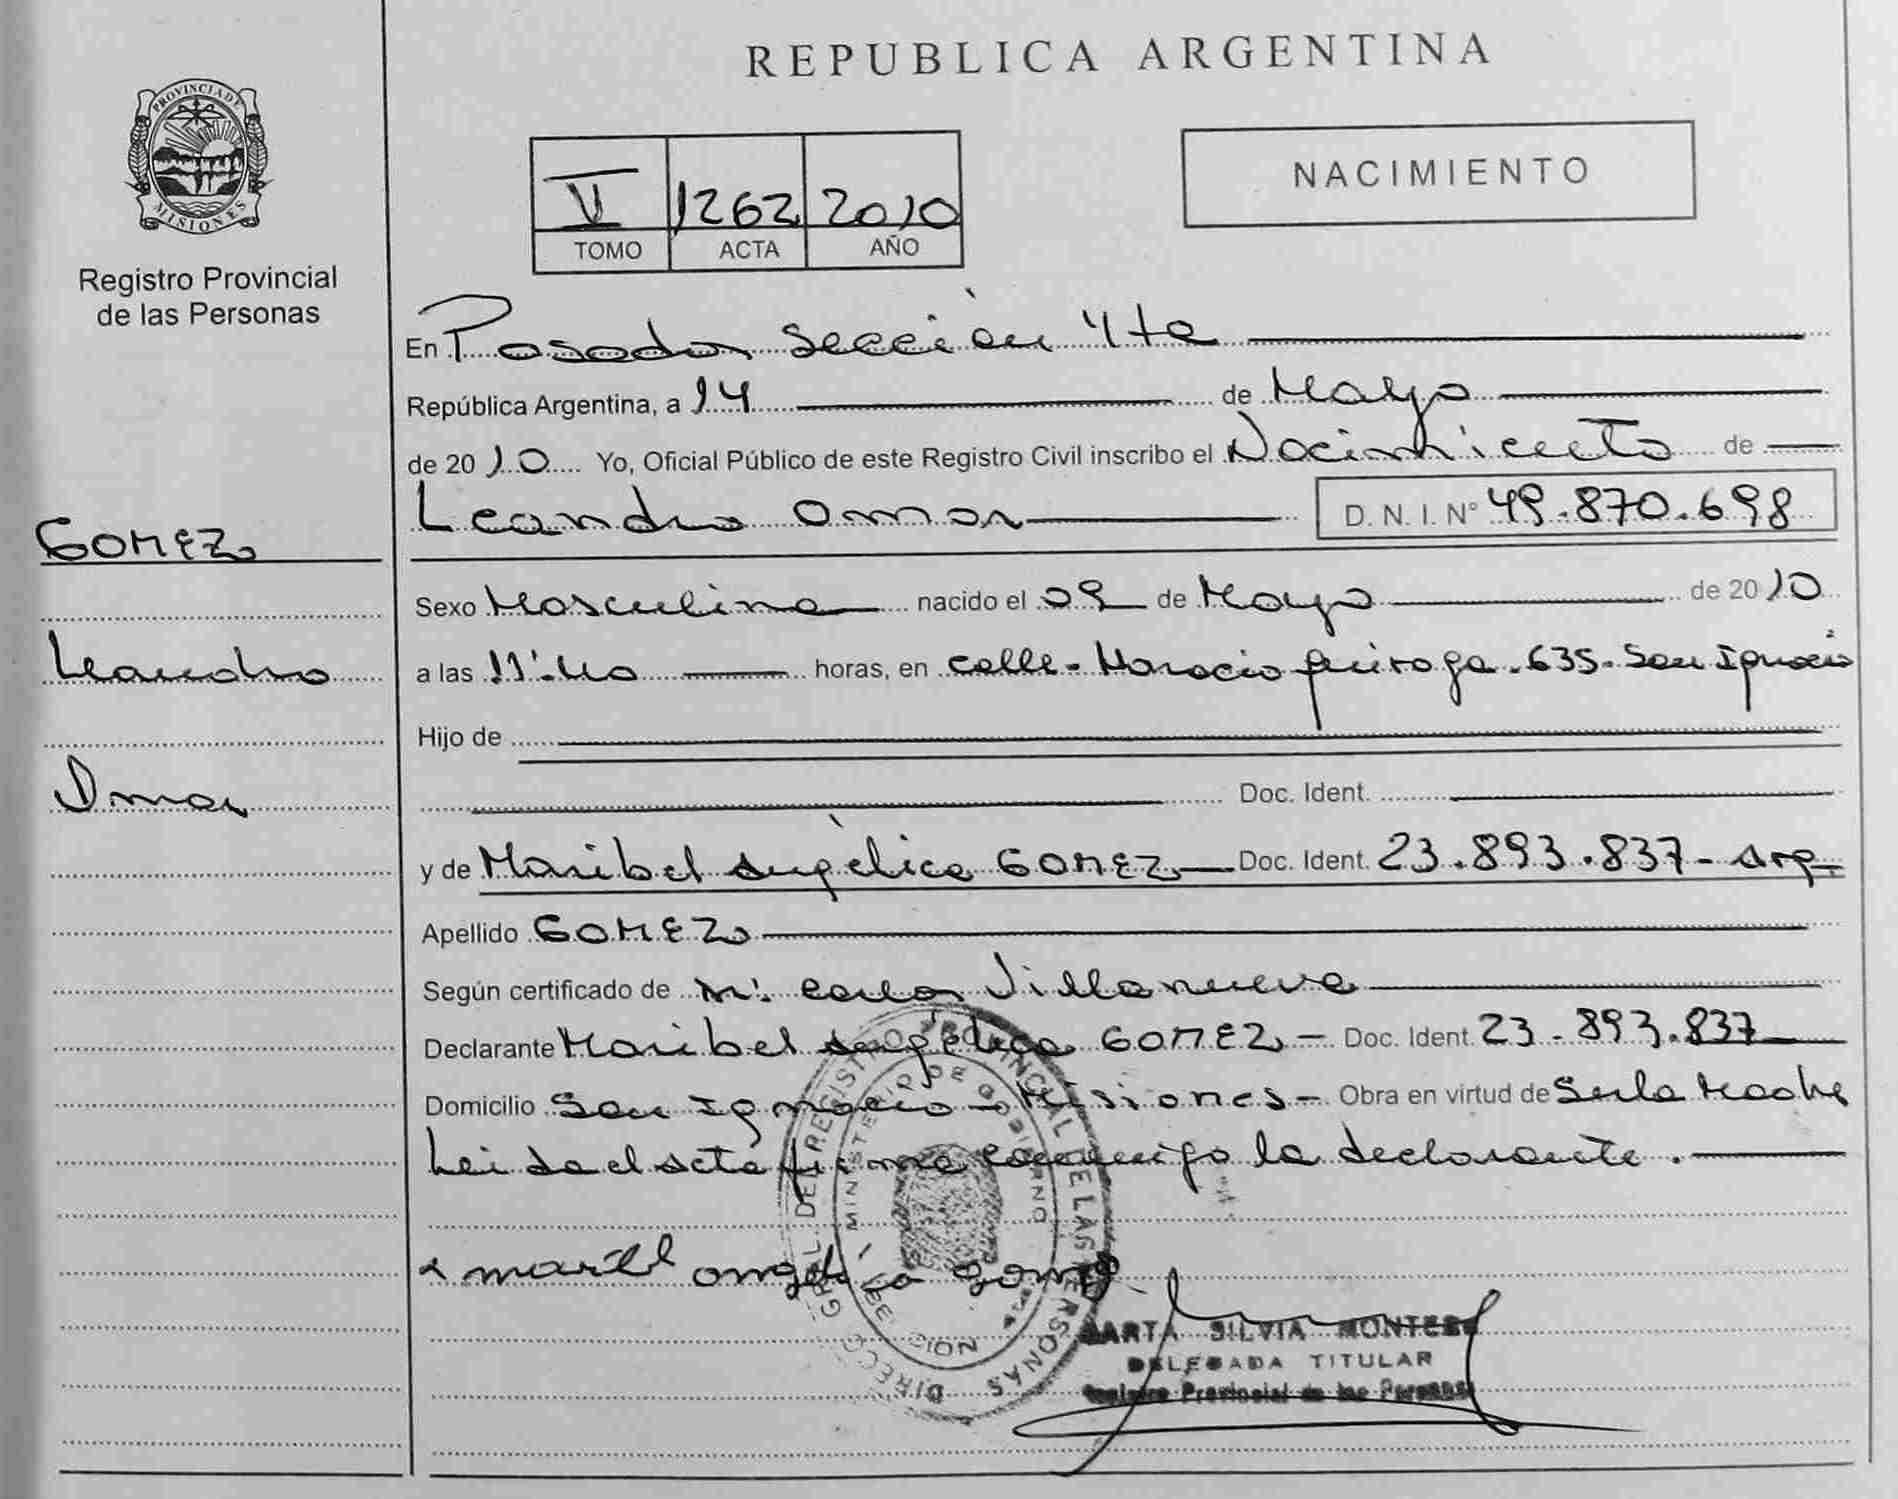 REPUBLICA ARGENTINA
PROVINCIA DE
MISIONES
Registro Provincial
de las Personas
V 1262 2010
TOMO ACTA AÑO
NACIMIENTO
GOMEZ
Leandro
Omar
En Posadas Sección 4ta
República Argentina, a 14 de Mayo
de 2010 Yo, Oficial Público de este Registro Civil inscribo el Nacimiento de
Leandro Omar D. N. I. Nº 49.870.698
Sexo Masculino nacido el 09 de Mayo de 2010
a las 11:40 horas, en calle - Horacio Quiroga . 635 - San Ignacio
Hijo de
Doc. Ident.
y de Maribel Angèlica GOMEZ Doc. Ident. 23.893.837 - Arg.
Apellido GOMEZ
Según certificado de Carlos Villanueva
Declarante Maribel Angélica GOMEZ - Doc. Ident. 23.893.837
Domicilio San Ignacio - Misiones - Obra en virtud de Ser la Madre
Leida el acta firma conmigo la declarante.
DIRECC GRAL DEL REGISTRO PROVINCIAL DE LAS PERSONAS
MINISTERIO DE GOBIERNO
angelica gomez
MARTA SILVIA MONTES
DELEGADA TITULAR
Registro Provincial de las Personas